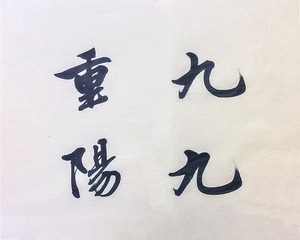 九九
重陽